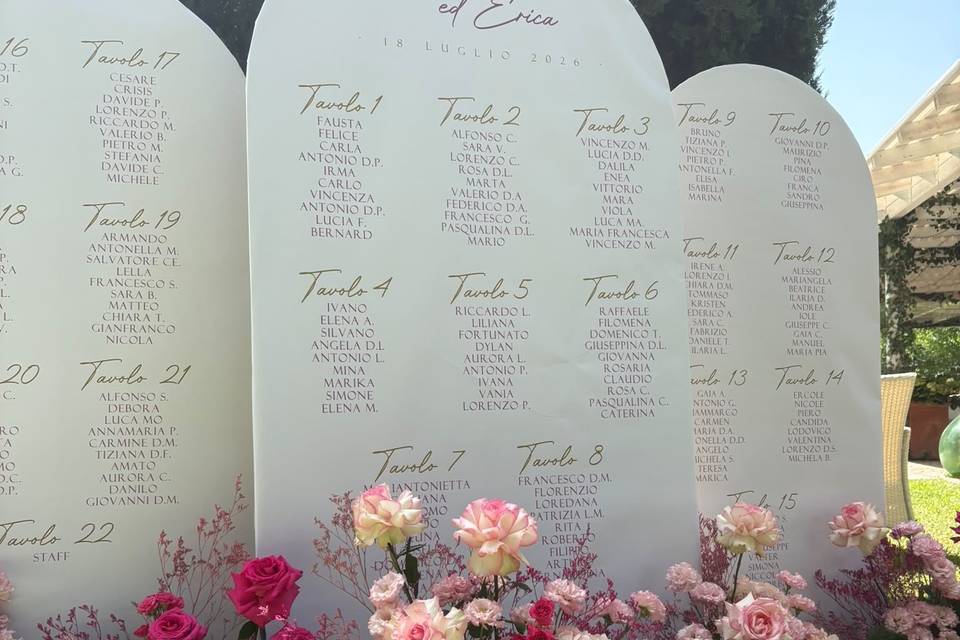 ed Erica
18 LUGLIO 2026
16
D.T.
S.
Tavolo 17
CESARE
CRISIS
DAVIDE P.
LORENZO P.
RICCARDO M.
VALERIO B.
PIETRO M.
STEFANIA
DAVIDE C.
MICHELE
18
Tavolo 19
ARMANDO
ANTONELLA M.
SALVATORE CE.
LELLA
FRANCESCO S.
SARA B.
MATTEO
CHIARA T.
GIANFRANCO
NICOLA
20
Tavolo 21
ALFONSO S.
DEBORA
LUCA MO
ANNAMARIA P.
CARMINE D.M.
TIZIANA D.F.
AMATO
AURORA C.
DANILO
GIOVANNI D.M.
Tavolo 22
STAFF
Tavolo 1
FAUSTA
FELICE
CARLA
ANTONIO D.P.
IRMA
CARLO
VINCENZA
ANTONIO D.P.
LUCIA F.
BERNARD
Tavolo 2
ALFONSO C.
SARA V.
LORENZO C.
ROSA D.L.
MARTA
VALERIO D.A
FEDERICO D.A.
FRANCESCO G.
PASQUALINA D.L.
MARIO
Tavolo 3
VINCENZO M.
LUCIA D.D.
DALILA
ENEA
VITTORIO
MARA
VIOLA
LUCA MA.
MARIA FRANCESCA
VINCENZO M.
Tavolo 4
IVANO
ELENA A.
SILVANO
ANGELA D.L
ANTONIO L.
MINA
MARIKA
SIMONE
ELENA M.
Tavolo 5
RICCARDO L.
LILIANA
FORTUNATO
DYLAN
AURORA L.
ANTONIO P.
IVANA
VANIA
LORENZO P.
Tavolo 6
RAFFAELE
FILOMENA
DOMENICO T.
GIUSEPPINA D.L.
GIOVANNA
ROSARIA
CLAUDIO
ROSA C.
PASQUALINA C.
CATERINA
Tavolo 7
Tavolo 8
FRANCESCO D.M.
FLORENZIO
LOREDANA
PATRIZIA L.M.
RITA
ROBERTO
Tavolo 9
BRUNO
TIZIANA P.
VINCENZO I.
PIETRO P.
ANTONELLA F.
ELISA
ISABELLA
MARINA
Tavolo 10
GIOVANNI D.P.
MAURIZIO
PINA
FILOMENA
CIRO
FRANCA
SANDRO
GIUSEPPINA
Tavolo 11
IRENE A.
LORENZO I.
CHIARA D.M.
TOMMASO
KRISTEN
FEDERICO A.
SARA C.
FABRIZIO
DANIELE T.
HILARIA L.
Tavolo 12
ALESSIO
MARIANGELA
BEATRICE
ILARIA D.
ANDREA
IOLE
GIUSEPPE C.
GAIA C.
MANUEL
MARIA PIA
Tavolo 13
GAIA A.
ANTONIO G.
CARMEN
MARIA D.A.
ANGELO
MICHELA S.
TERESA
Tavolo 14
ERCOLE
NICOLE
PIERO
CANDIDA
LODOVICO
VALENTINA
LORENZO D.L.
MICHELA B.
Tavolo 15
SIMONA